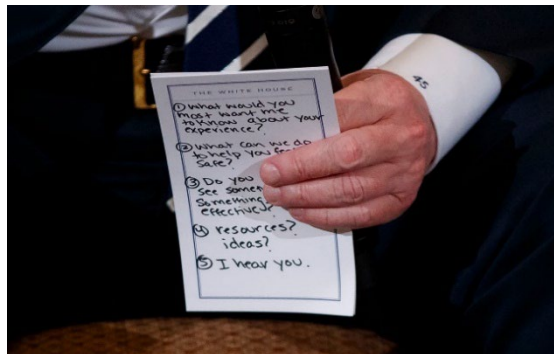 THE WHITE HOUSE
① What would you
most want me
to know about your
experience?
② What can we do
to help you
safe?
③ Do you
see
Something
effective?
④ resources?
ideas?
⑤ I hear you.
45